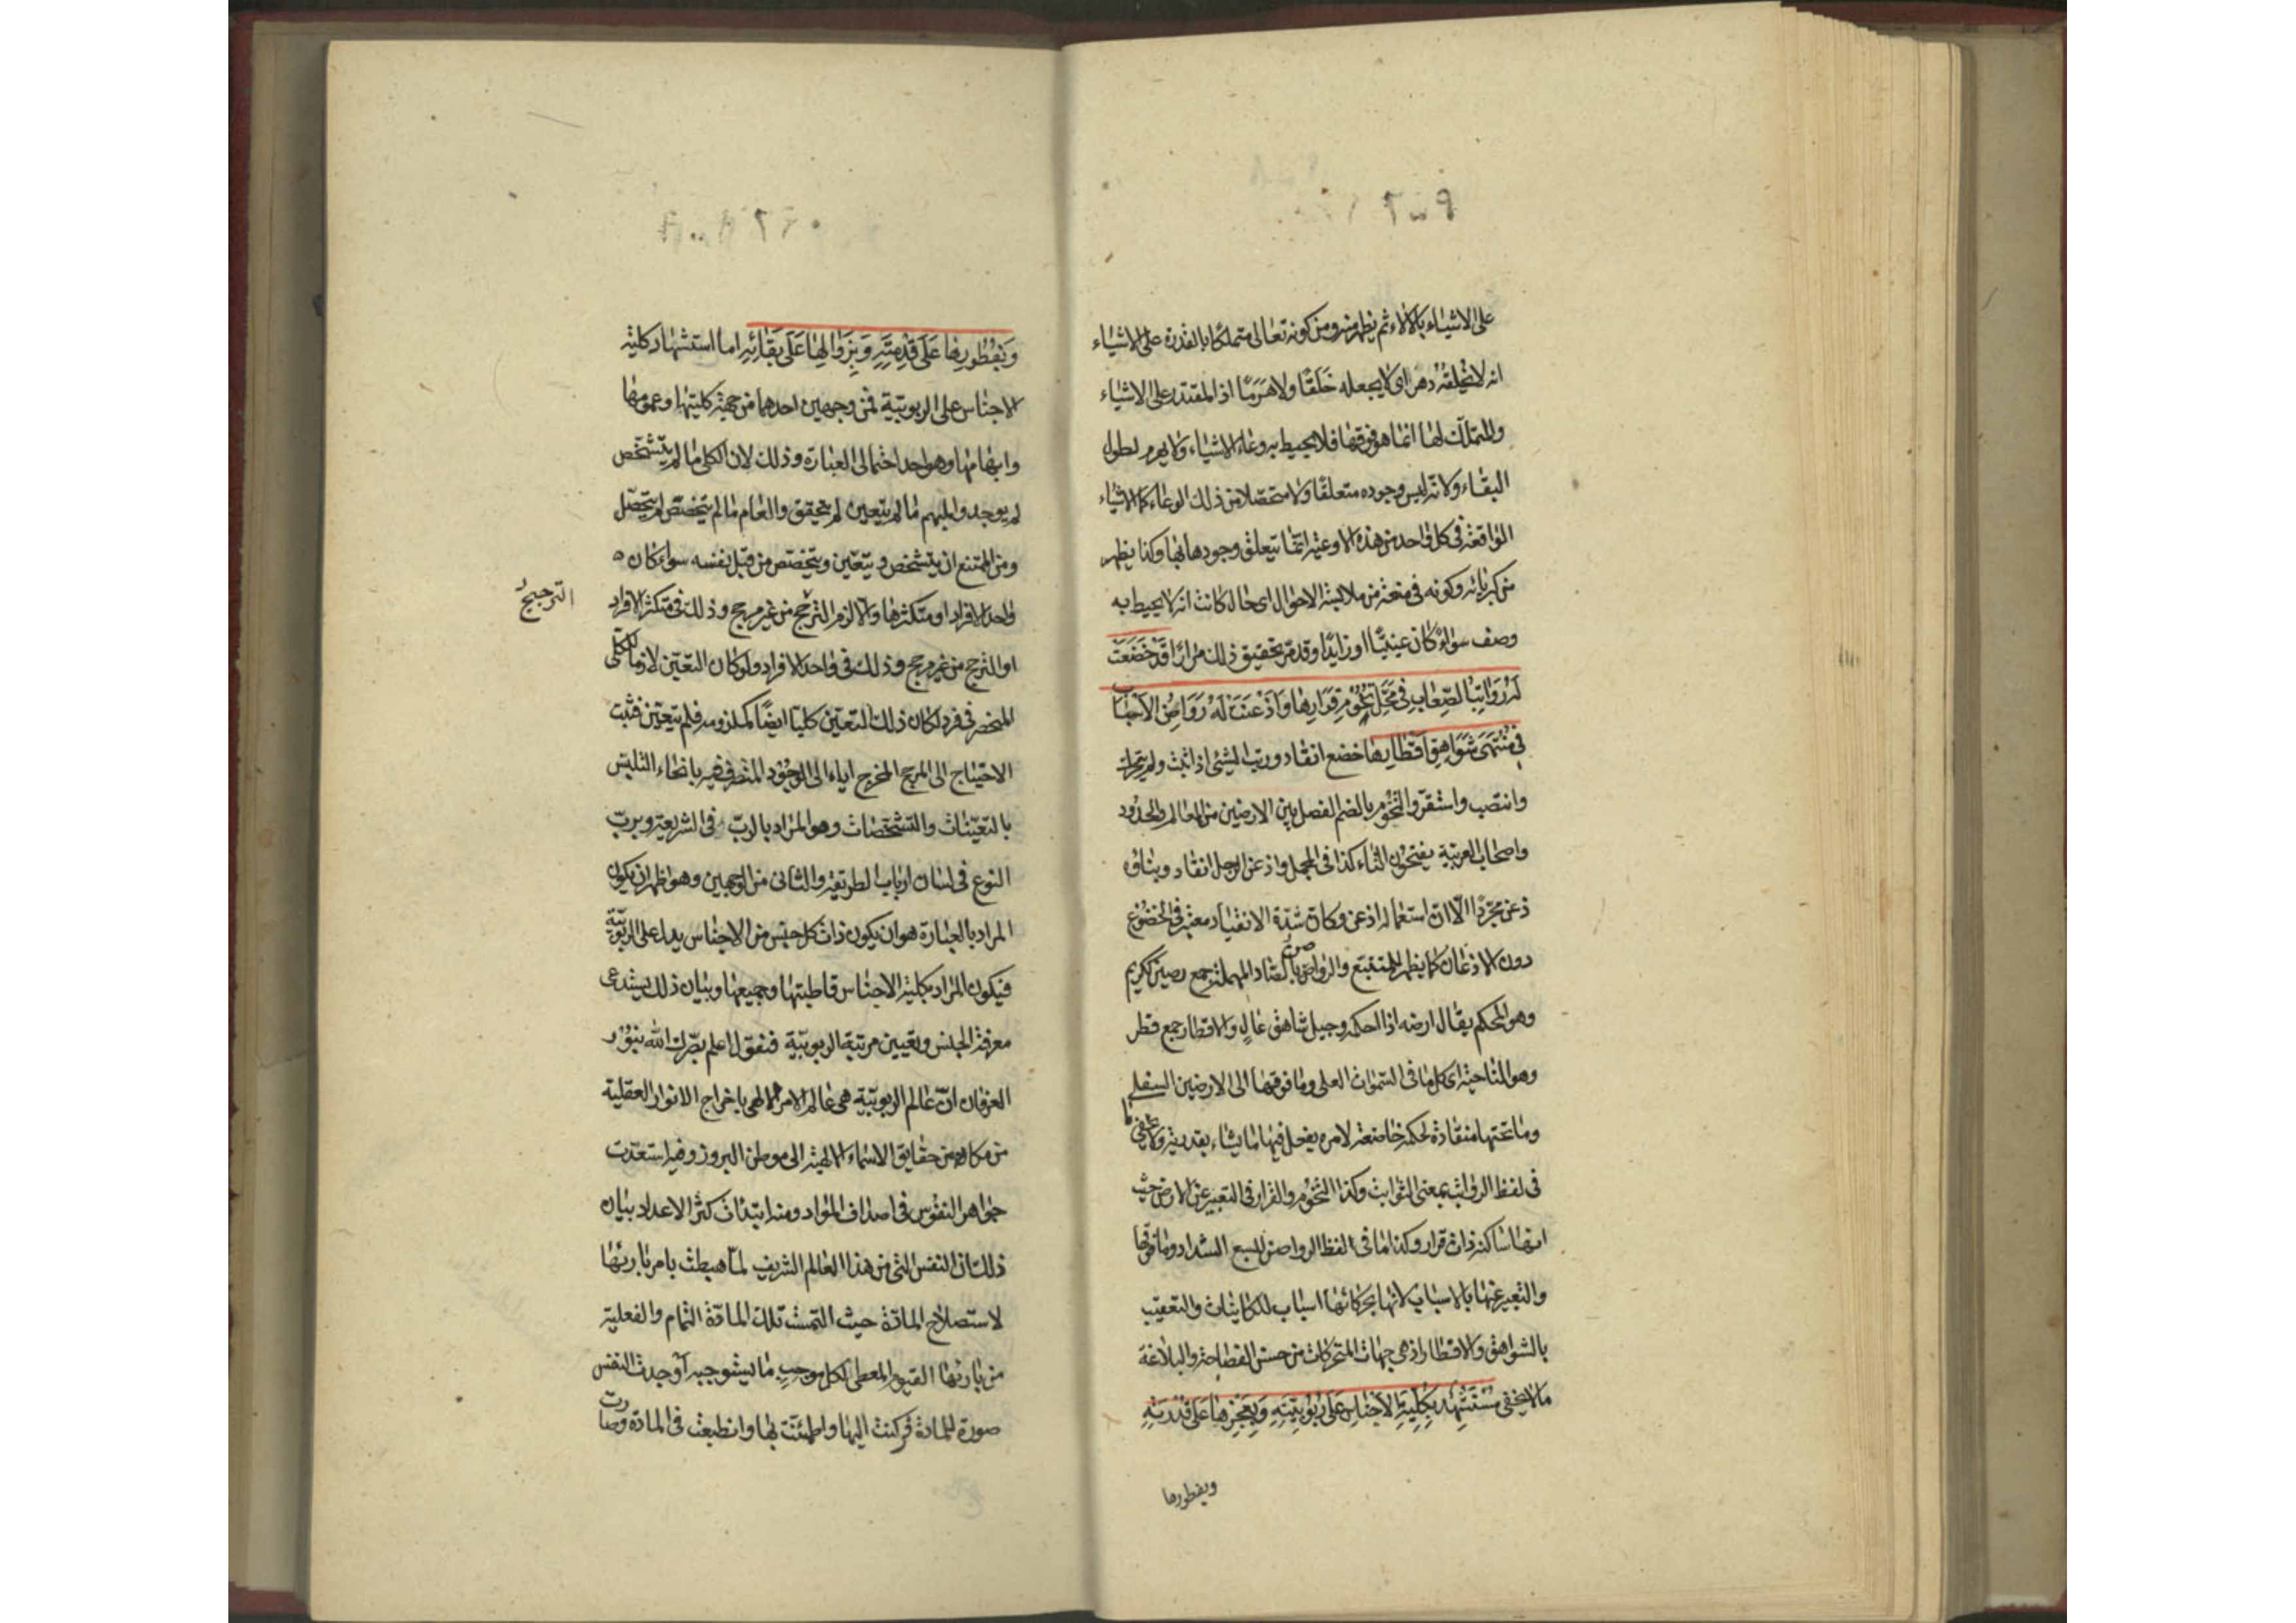 على الاشياء بالالاء ثم يظهر منه ومن كونه تعالى متملكا بالقدرة على الاشياء
انه لا يخلقه دهر اى لا يجعله خلقا ولا هرما اذ المقتدر على الاشياء
والمتملك لها انما هو فوقها فلا يحيط به وعاء الاشياء ولا يهرم لطول
البقاء ولانه ليس وجوده متعلقا ولا متحصلا من ذلك الوعاء كما الاشياء
الواقعة فى كل واحد من هذه الاوعية انما يتعلق وجودها بها وكذا يظهر
من كبريائه وكونه فى منعة من ملابسة الاحوال اى حال كانت انه لا يحيط به
وصف سواء كان عينيا او زايدا وقد مر تحقيق ذلك مرارا قَدْ خَضَعَتْ
لَهُ رَوَاتِبُ الصِّعَابِ فى مَحَلِّ تُخُومِ قَرَارِهَا وَاَذْعَنَتْ لَهُ رَوَاصِنُ الاَسْبَابِ
فى مُنْتَهَى شَوَاهِقِ اَقْطَارِهَا خضع انقاد ورتب الشئ اذا ثبت ولم يتحرك
وانتصب واستقر والتخوم بالضم الفصل بين الارضين من المعالم والحدود
واصحاب العربية يفتحون التاء كذا فى المجمل واذعن الرجل انقاد وبناؤه
ذعن مجردا الا ان استعماله اذعن وكان شدة الانقياد معتبر فى الخضوع
دون الاذعان كما يظهر للمتتبع والرواصن بالصاد المهملة جمع رصين ككريم
وهو المحكم يقال ارصنه اذا احكمه وجبل شاهق عال والاقطار جمع قطر
وهو الناحية اى كل ما فى السموات العلى وما فوقها الى الارضين السفلى
وما تحتها منقادة لحكمه خاضعة لامره يفعل فيها ما يشاء بقدرته ولا يخفى ما
فى لفظ الرواتب بمعنى الثوابت وكذا التخوم والقرار فى التعبير عن الارض حيث
انها ساكنة ذات قرار وكذا ما فى لفظ الرواصن للسبع الشداد وما فوقها
والتعبير عنها بالاسباب لانها بحركاتها اسباب للكاينات والتعقيب
بالشواهق والاقطار اذ هى جهات المتحركات من حسن الفصاحة والبلاغة
ما لا يخفى مُسْتَشْهِد بِكُلِّيَّةِ الاَجْنَاسِ عَلَى رُبُوبِيَّتِهِ وَبِعَجْزِهَا عَلَى قُدْرَتِهِ
وبفطورها
وَبِفُطُورِهَا عَلَى قِدْمَتِهِ وَبِزَوَالِهَا عَلَى بَقَائِهِ اما استشهاد كلية
الاجناس على الربوبية فمن وجهين احدهما من جهة كليتها وعمومها
وابهامها وهو احد احتمالى العبارة وذلك لان الكلى ما لم يتشخص
لم يوجد والمبهم ما لم يتعين لم يتحقق والعام ما لم يتخصص لم يتحصل
ومن الممتنع ان يتشخص ويتعين ويتخصص من قبل نفسه سواء كان
واحد الافراد او متكثرها والا لزم الترجح من غير مرجح وذلك فى متكثر الافراد
الترجيح
او الترجح من غير مرجح وذلك فى واحد الافراد ولو كان التعين لازما للكلى
المنحصر فى فرد لكان ذلك التعين كليا ايضا كملزومه فلم يتعين فثبت
الاحتياج الى المرجح المخرج اياه الى الوجود المتصرف فيه بانحاء التلبس
بالتعينات والتشخصات وهو المراد بالرب فى الشريعة وبرب
النوع فى لسان ارباب الطريقة والثانى من الوجهين وهو اظهر ان يكون
المراد بالعبارة هو ان يكون ذات كل جنس من الاجناس يدل على الربوبية
فيكون المراد بكلية الاجناس قاطبتها وجميعها وبيان ذلك يستدعى
معرفة الجنس وتعيين مرتبة الربوبية فنقول اعلم بصرك الله بنور
العرفان ان عالم الربوبية هى عالم الامر الالهى باخراج الانوار العقلية
من مكامن حقايق الاسماء الالهية الى موطن البروز وفيه استعدت
جواهر النفوس فى اصداف المواد ومنه ابتدات كثرة الاعداد بيان
ذلك ان النفس التى من هذا العالم الشريف لما هبطت بامر بارئها
لاستصلاح المادة حيث التمست تلك المادة التمام والفعلية
من بارئها القيوم المعطى لكل موجب ما يستوجبه اوجدت النفس
صورة للمادة فركنت اليها واطمئنت بها وانطبعت فى المادة وصارت